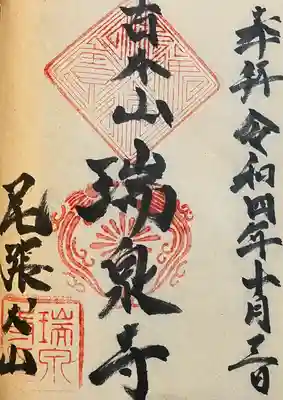 奉拝 令和四年十月三日
青龍山
瑞泉寺
尾張犬山
瑞泉寺